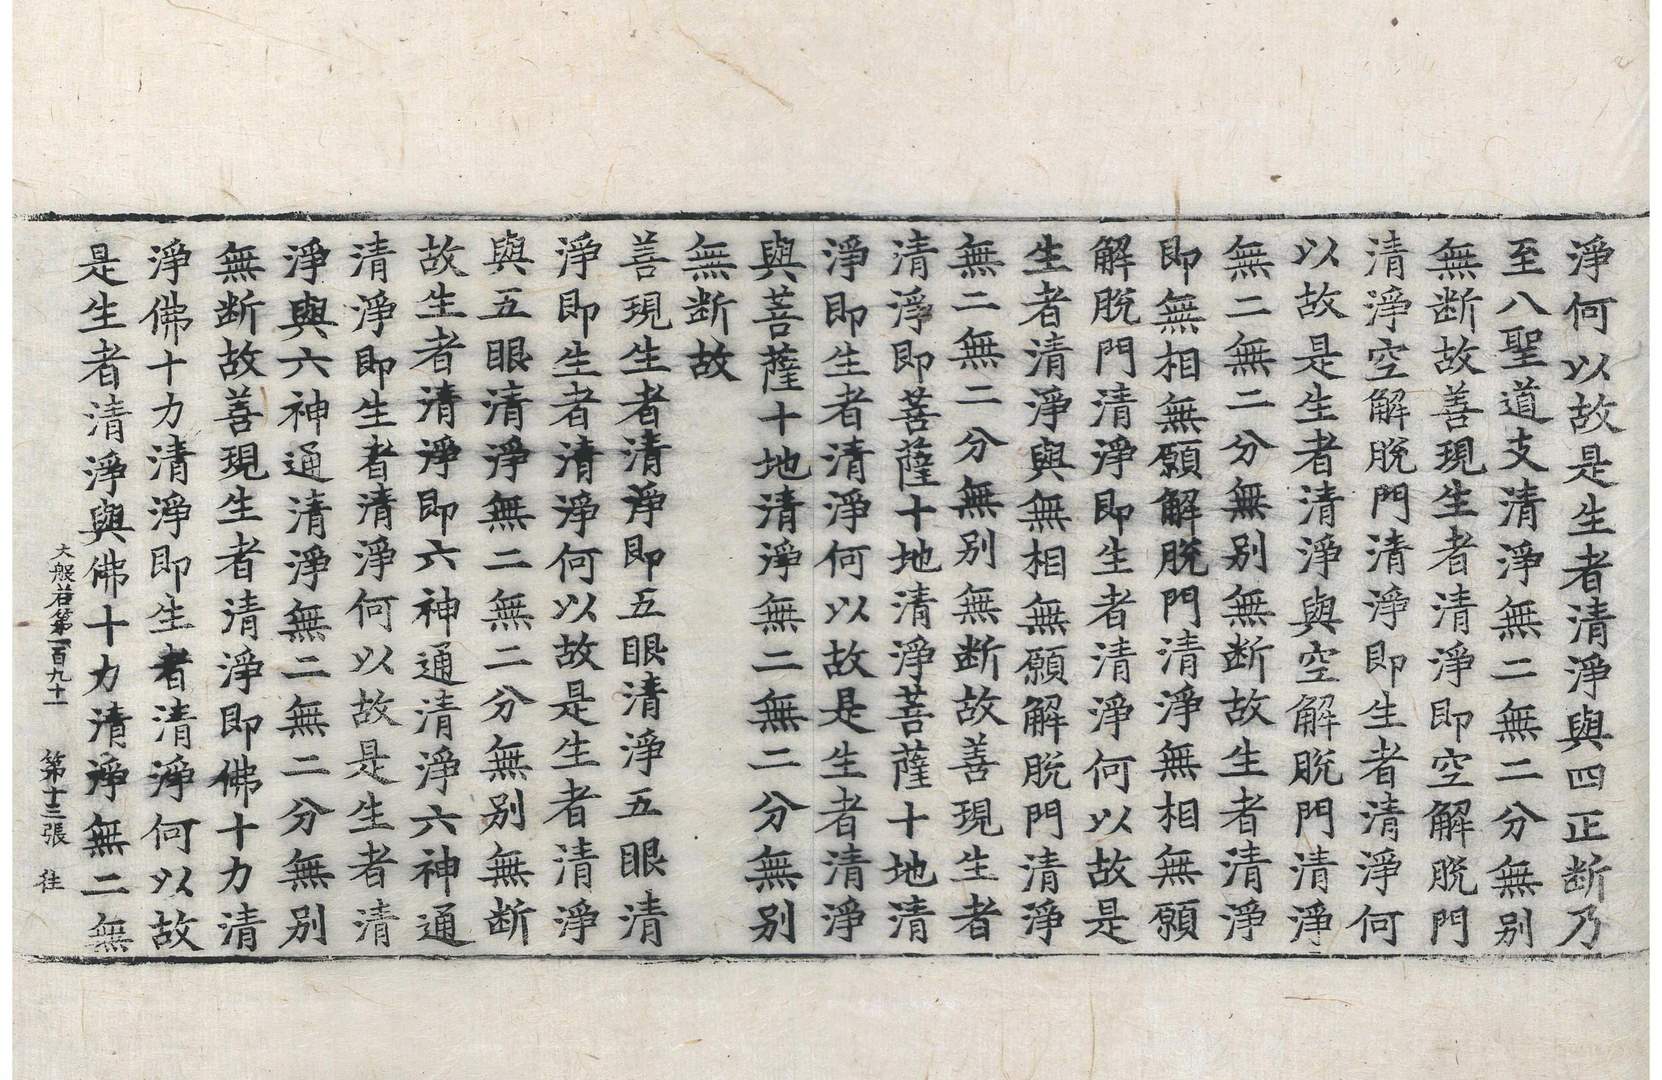 淨何以故是生者清淨與四正断乃
至八聖道支清淨無二無二分無别
無断故善現生者清淨即空解脫門
清淨空解脫門清淨即生者清淨何
以故是生者清淨與空解脫門清淨
無二無二分無别無断故生者清淨
即無相無願解脫門清淨無相無願
解脫門清淨即生者清淨何以故是
生者清淨與無相無願解脫門清淨
無二無二分無别無断故善現生者
清淨即菩薩十地清淨菩薩十地清
淨即生者清淨何以故是生者清淨
與菩薩十地清淨無二無二分無别
無断故
善現生者清淨即五眼清淨五眼清
淨即生者清淨何以故是生者清淨
與五眼清淨無二無二分無别無断
故生者清淨即六神通清淨六神通
清淨即生者清淨何以故是生者清
淨與六神通清淨無二無二分無别
無断故善現生者清淨即佛十力清
淨佛十力清淨即生者清淨何以故
是生者清淨與佛十力清淨無二無
大般若第一百九十一 第十三張 往